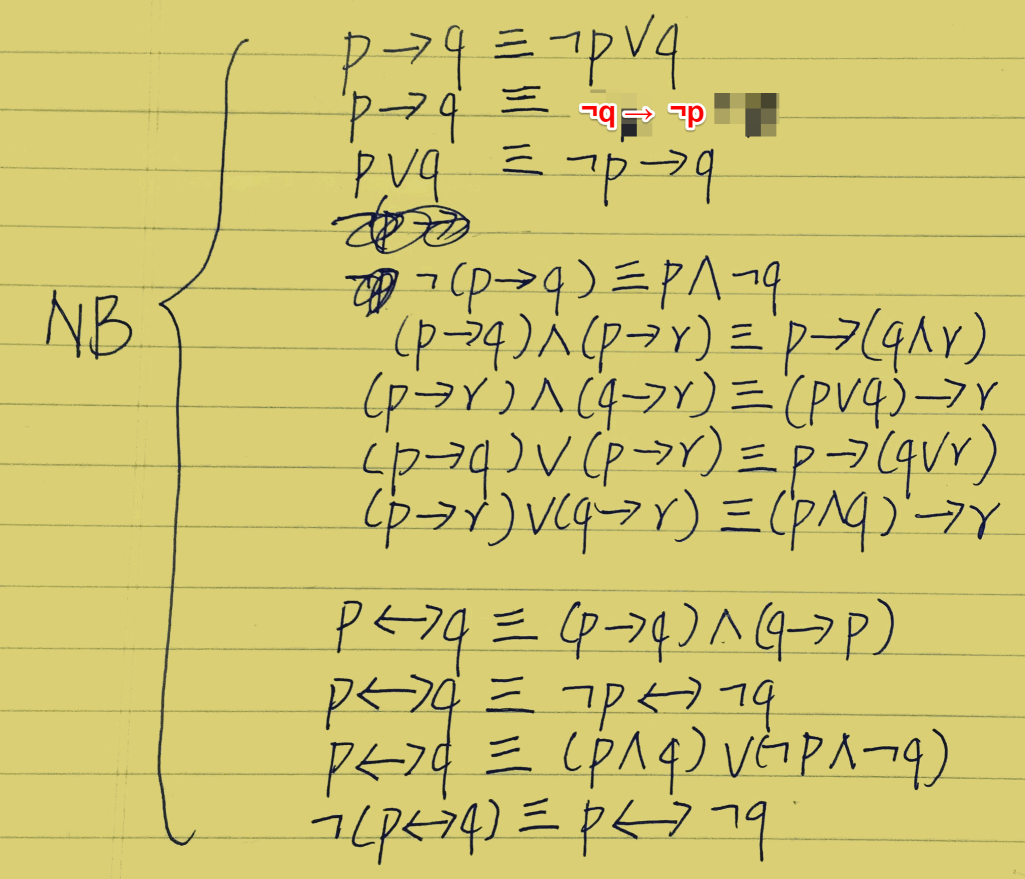 p → q ≡ ¬p ∨ q
p → q ≡ ¬q → ¬p
p ∨ q ≡ ¬p → q
¬(p → q) ≡ p ∧ ¬q
(p → q) ∧ (p → r) ≡ p → (q ∧ r)
NB
(p → r) ∧ (q → r) ≡ (p ∨ q) → r
(p → q) ∨ (p → r) ≡ p → (q ∨ r)
(p → r) ∨ (q → r) ≡ (p ∧ q) → r
p ↔ q ≡ (p → q) ∧ (q → p)
p ↔ q ≡ ¬p ↔ ¬q
p ↔ q ≡ (p ∧ q) ∨ (¬p ∧ ¬q)
¬(p ↔ q) ≡ p ↔ ¬q